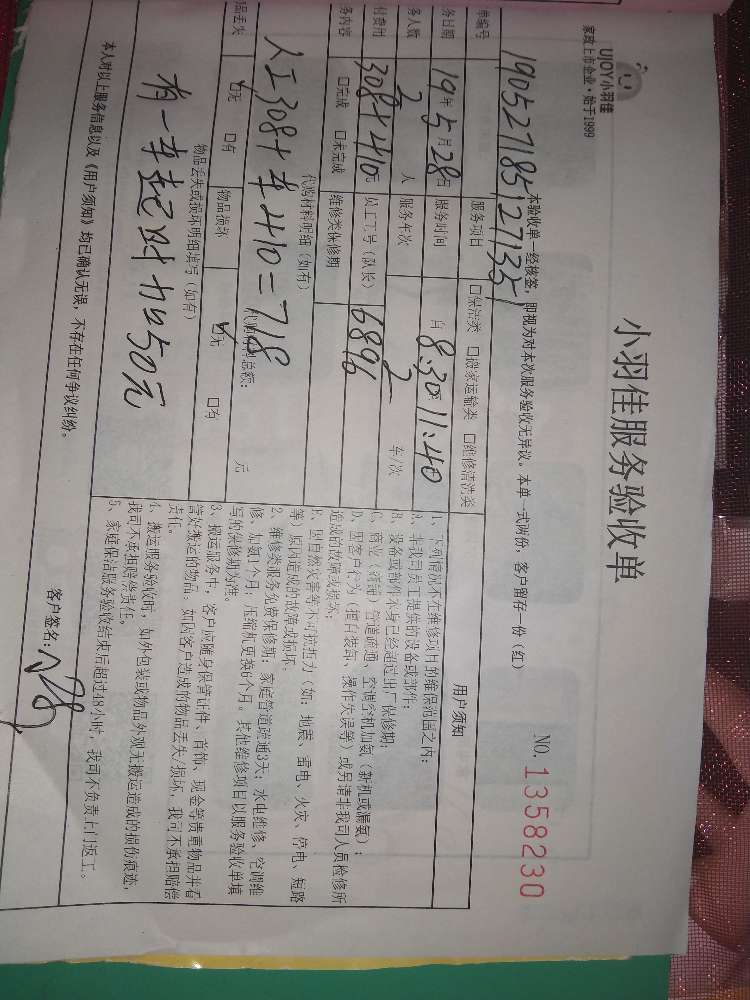 UJOY小羽佳
家政上市企业·始于1999
小羽佳服务验收单
NO. 1358230
本验收单一经核签,即视为对本次服务验收无异议。本单一式两份,客户留存一份(红)
单编号 190527185127135
服务项目 □保洁类 □搬家运输类 □维修清洗类
务日期 19年5月28日 服务时间 自 8:30 至 11:40
务人数 2 人 服务车次 2 车/次
付费用 308+410元 员工工号(队长) 6896
务内容 □完成 □未完成 维修类保修期
代购材料明细(如有)
人工308+车410=718
代购材料总额: 元
品丢失 ☑无 □有 物品损坏 ☑无 □有
物品丢失或损坏明细填写(如有)
有一车起时加50元
用户须知
1、下列情况不在维修项目的维保范围之内:
A、非我司员工提供的设备或部件;
B、设备或部件本身已经超过出厂保修期;
C、商业(商铺)管道疏通、空调客机加氨(新机或漏氨);
D、因客户行为(擅自装卸、操作失误等)或另请非我司人员检修所
造成的故障或损坏;
E、因自然灾害等不可抗拒力(如:地震、雷电、火灾、停电、短路
等)原因造成的故障或损坏。
2、维修类服务免费保修期:家庭管道疏通3天;水电维修、空调维
修、加氨1个月;压缩机更换6个月。其他维修项目以服务验收单填
写的保修期为准。
3、搬运服务中,客户应随身保管证件、首饰、现金等贵重物品并看
管好搬运的物品。如因客户造成的物品丢失/损坏,我司不承担赔偿
责任。
4、搬运服务验收时,如外包装或物品外观无搬运造成的损伤痕迹,
我司不承担赔偿责任。
5、家庭保洁服务验收结束后超过48小时,我司不负责上门返工。
本人对以上服务信息以及《用户须知》均已确认无误,不存在任何争议纠纷。
客户签名: